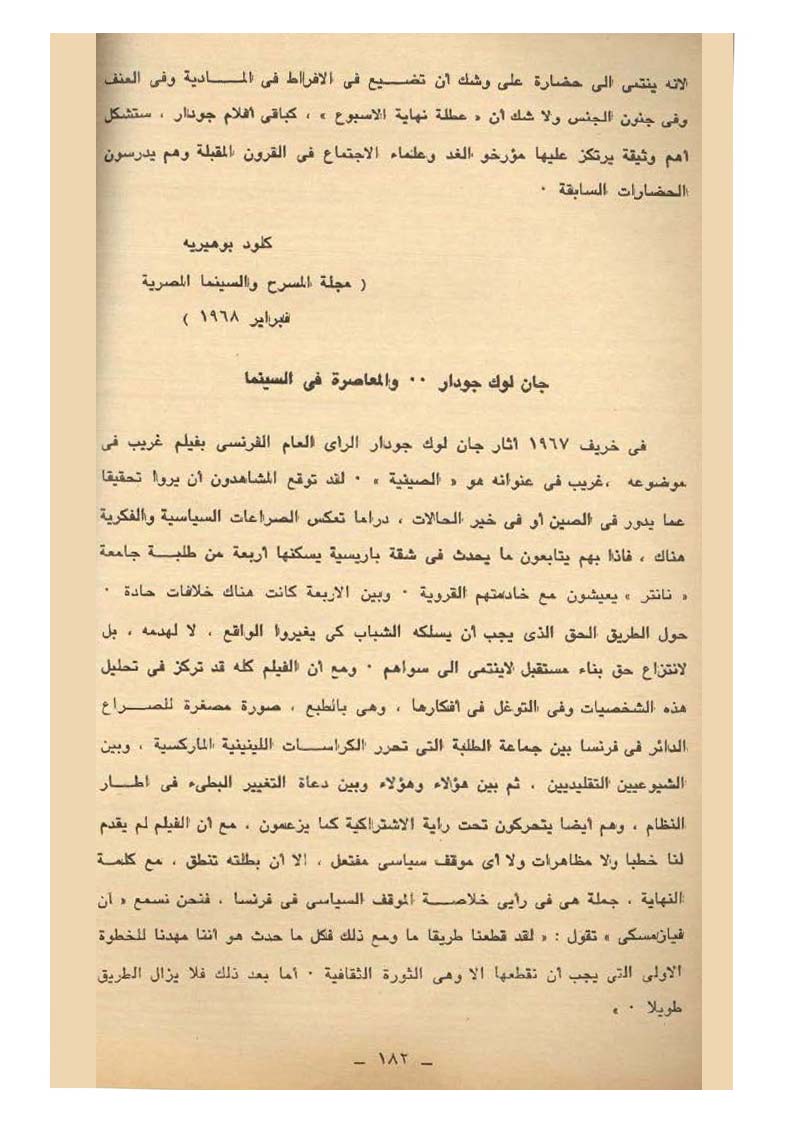 لانه ينتمى الى حضارة على وشك أن تضـــيع فى الافراط فى المـــادية وفى العنف
وفى جنون الجنس ولا شك أن « عطلة نهاية الاسبوع » ، كباقى أفلام جودار ، ستشكل
أهم وثيقة يرتكز عليها مؤرخو الغد وعلماء الاجتماع فى القرون المقبلة وهم يدرسون
الحضارات السابقة ٠
كلود بوهيريه
( مجلة المسرح والسينما المصرية
فبراير ١٩٦٨ )
جان لوك جودار ٠٠ والمعاصرة فى السينما
فى خريف ١٩٦٧ أثار جان لوك جودار الراى العام الفرنسى بفيلم غريب فى
موضوعه ، غريب فى عنوانه هو « الصينية » ٠ لقد توقع المشاهدون أن يروا تحقيقا
عما يدور فى الصين أو فى خير الحالات ، دراما تعكس الصراعات السياسية والفكرية
هناك ، فاذا بهم يتابعون ما يحدث فى شقة باريسية يسكنها أربعة من طلبـــة جامعة
« نانتر » يعيشون مع خادمتهم القروية ٠ وبين الاربعة كانت هناك خلافات حادة ٠
حول الطريق الحق الذى يجب أن يسلكه الشباب كى يغيروا الواقع ، لا لهدمه ، بل
لانتزاع حق بناء مستقبل لاينتمى الى سواهم ٠ ومع أن الفيلم كله قد تركز فى تحليل
هذه الشخصيات وفى التوغل فى أفكارها ، وهى بالطبع ، صورة مصغرة للصـــراع
الدائر فى فرنسا بين جماعة الطلبة التى تحرر الكراسـات اللينينية الماركسية ، وبين
الشيوعيين التقليديين ، ثم بين هؤلاء وهؤلاء وبين دعاة التغيير البطىء فى اطـــار
النظام ، وهم أيضا يتحركون تحت راية الاشتراكية كما يزعمون ، مع أن الفيلم لم يقدم
لنا خطبا ولا مظاهرات ولا أى موقف سياسى مفتعل ، الا أن بطلته تنطق ، مع كلمـة
النهاية ، جملة هى فى رأيى خلاصـــة الموقف السياسى فى فرنسا ، فنحن نسمع « آن
فيازمسكى » تقول : « لقد قطعنا طريقا ما ومع ذلك فكل ما حدث هو أننا مهدنا للخطوة
الاولى التى يجب أن نقطعها الا وهى الثورة الثقافية ٠ أما بعد ذلك فلا يزال الطريق
طويلا ٠ »
ـ ١٨٢ ـ